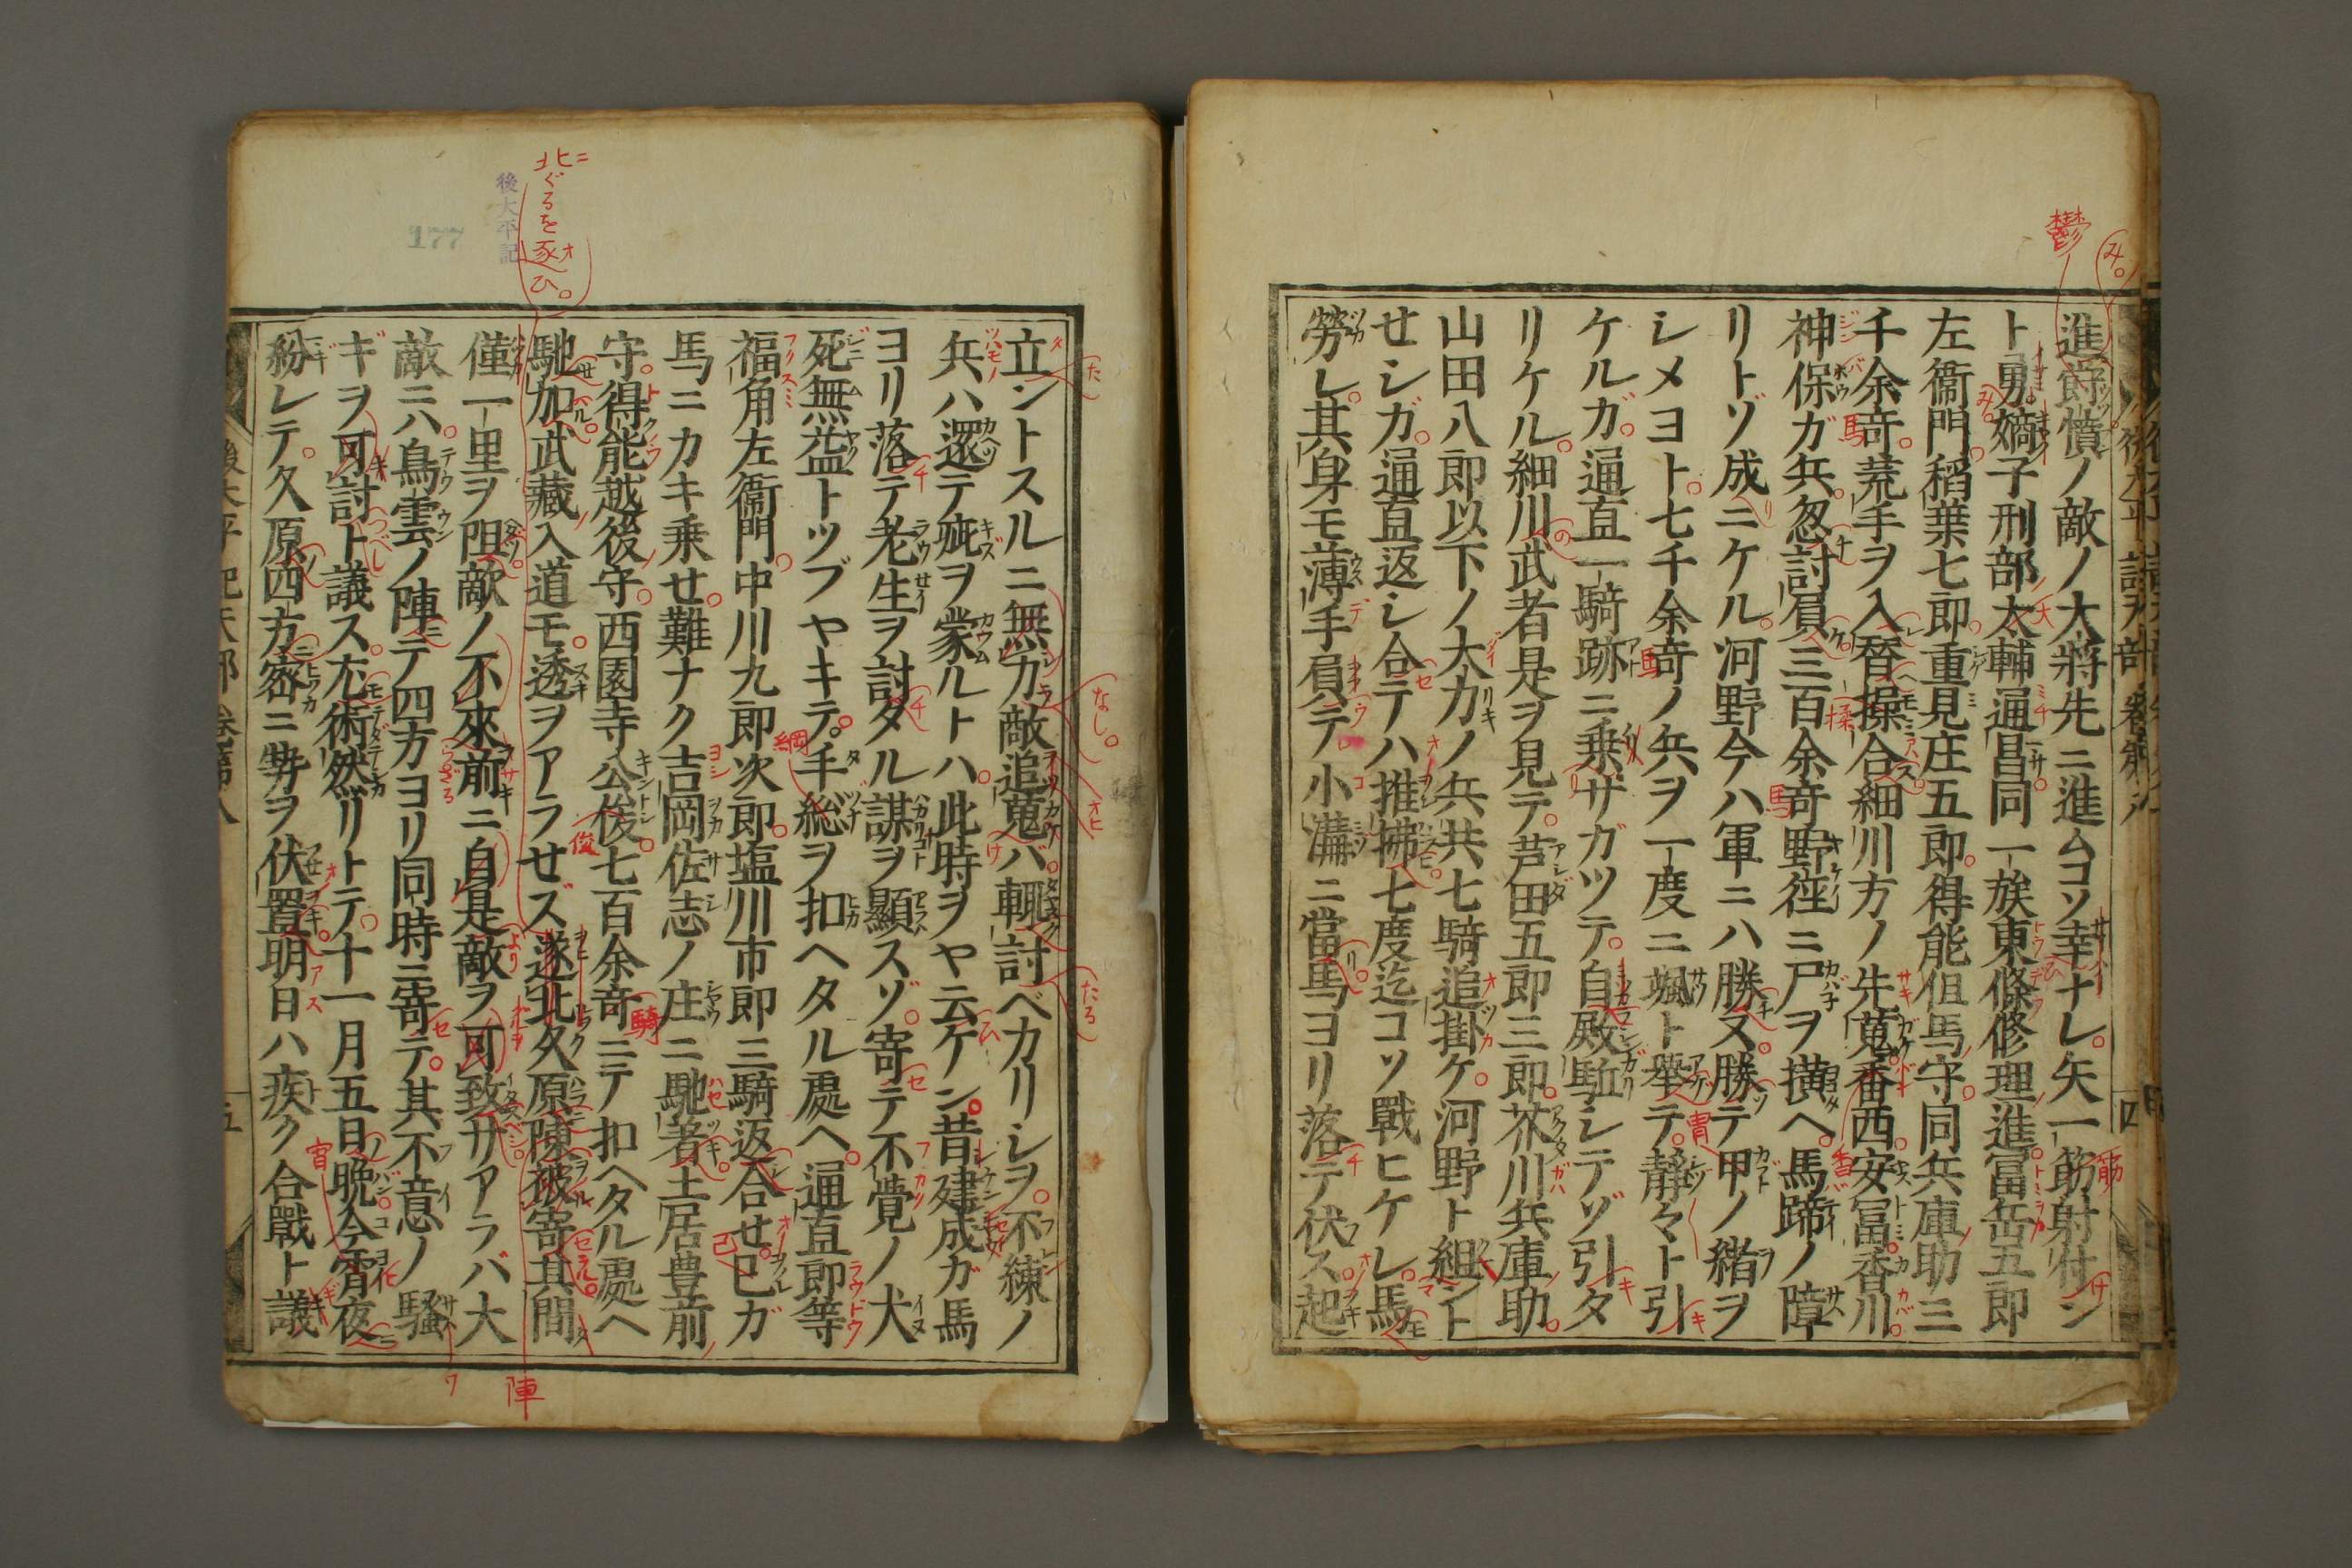 進欝憤ノ敵ノ大將先ニ進ムコソ幸ナレ矢一筋射付ン
ト勇嫡子刑部太輔通昌同一族東條修理進冨岳五郎
左衞門稻葉七郎重見庄五郎得能但馬守同兵庫助三
千余竒荒手ヲ入替操合細川方ノ先蒐香西安冨香川
神保ガ兵忽討負三百余竒野徑ニ尸ヲ横ヘ馬蹄ノ障
リトゾ成ニケル河野今ハ軍ニハ勝ヌ勝テ甲ノ緒ヲ
シメヨト七千余竒ノ兵ヲ一度ニ颯ト舉テ靜々ト引
ケルガ通直一騎跡ニ乗サガツテ自殿シテゾ引タ
リケル細川武者是ヲ見テ芦田五郎三郎芥川兵庫助
山田八郎以下ノ大力ノ兵共七騎追掛ケ河野ト組ント
せシガ通直返シ合テハ推拂七度迄コソ戰ヒケレ馬
勞レ其身モ薄手負テ小溝ニ當馬ヨリ落テ伏ス起
立ントスルニ無力敵追蒐バ輙討ベカリシヲ不練ノ
兵ハ還テ疵ヲ蒙ルトハ此時ヲヤ云ケン昔建成ガ馬
ヨリ落テ老生ヲ討タル謀ヲ顯スゾ寄テ不覺ノ犬
死無益トツブヤキテ手総ヲ扣ヘタル處ヘ通直郎等
福角左衞門中川九郎次郎塩川市郎三騎返合せ已ガ
馬ニカキ乗せ難ナク吉岡佐志ノ庄ニ馳著土居豊前
守得能越後守西園寺公俊七百余竒ニテ扣ヘタル處ヘ
馳加武藏入道モ透ヲアラせズ遂北久原陳被寄其間
僅一里ヲ阻敵ノ不來前ニ自是敵ヲ可致サアラバ大
敵ニハ鳥雲ノ陣テ四方ヨリ同時ニ寄テ其不意ノ騷
ギヲ可討ト議ス尤術然リトテ十一月五日晩今宵夜
紛レテ久原四方密ニ勢ヲ伏置明日ハ疾ク合戰ト議
後太平記
177
北ニ
ぐるを
逐ひ。
欝
み。
なし。
陣